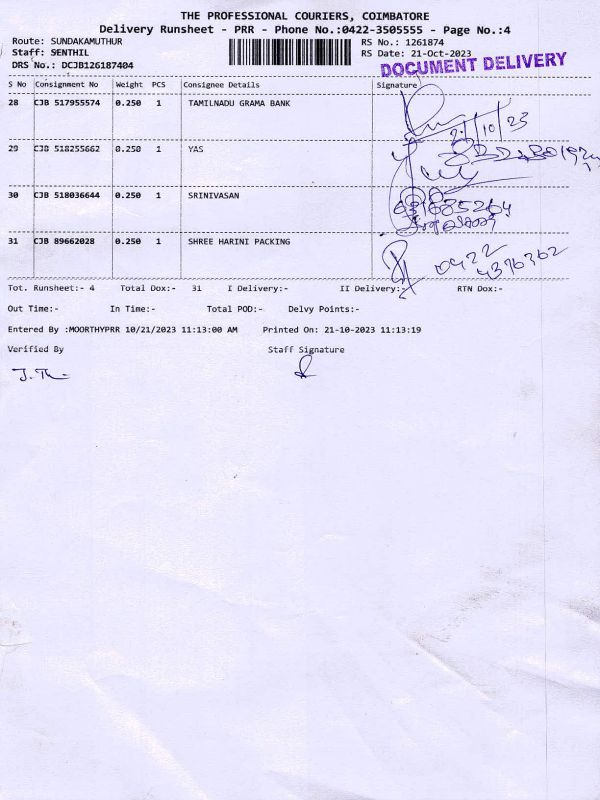 THE PROFESSIONAL COURIERS, COIMBATORE
Delivery Runsheet - PRR - Phone No.:0422-3505555 - Page No.:4
Route: SUNDAKAMUTHUR RS No.: 1261874
Staff: SENTHIL RS Date: 21-Oct-2023
DRS No.: DCJB126187404 DOCUMENT DELIVERY
S No Consignment No Weight PCS Consignee Details Signature
28 CJB 517955574 0.250 1 TAMILNADU GRAMA BANK
21/10/23
29 CJB 518255662 0.250 1 YAS
30 CJB 518036644 0.250 1 SRINIVASAN
31 CJB 89662028 0.250 1 SHREE HARINI PACKING
0422
4376362
Tot. Runsheet:- 4 Total Dox:- 31 I Delivery:- II Delivery:- RTN Dox:-
Out Time:- In Time:- Total POD:- Delvy Points:-
Entered By :MOORTHYPRR 10/21/2023 11:13:00 AM Printed On: 21-10-2023 11:13:19
Verified By Staff Signature